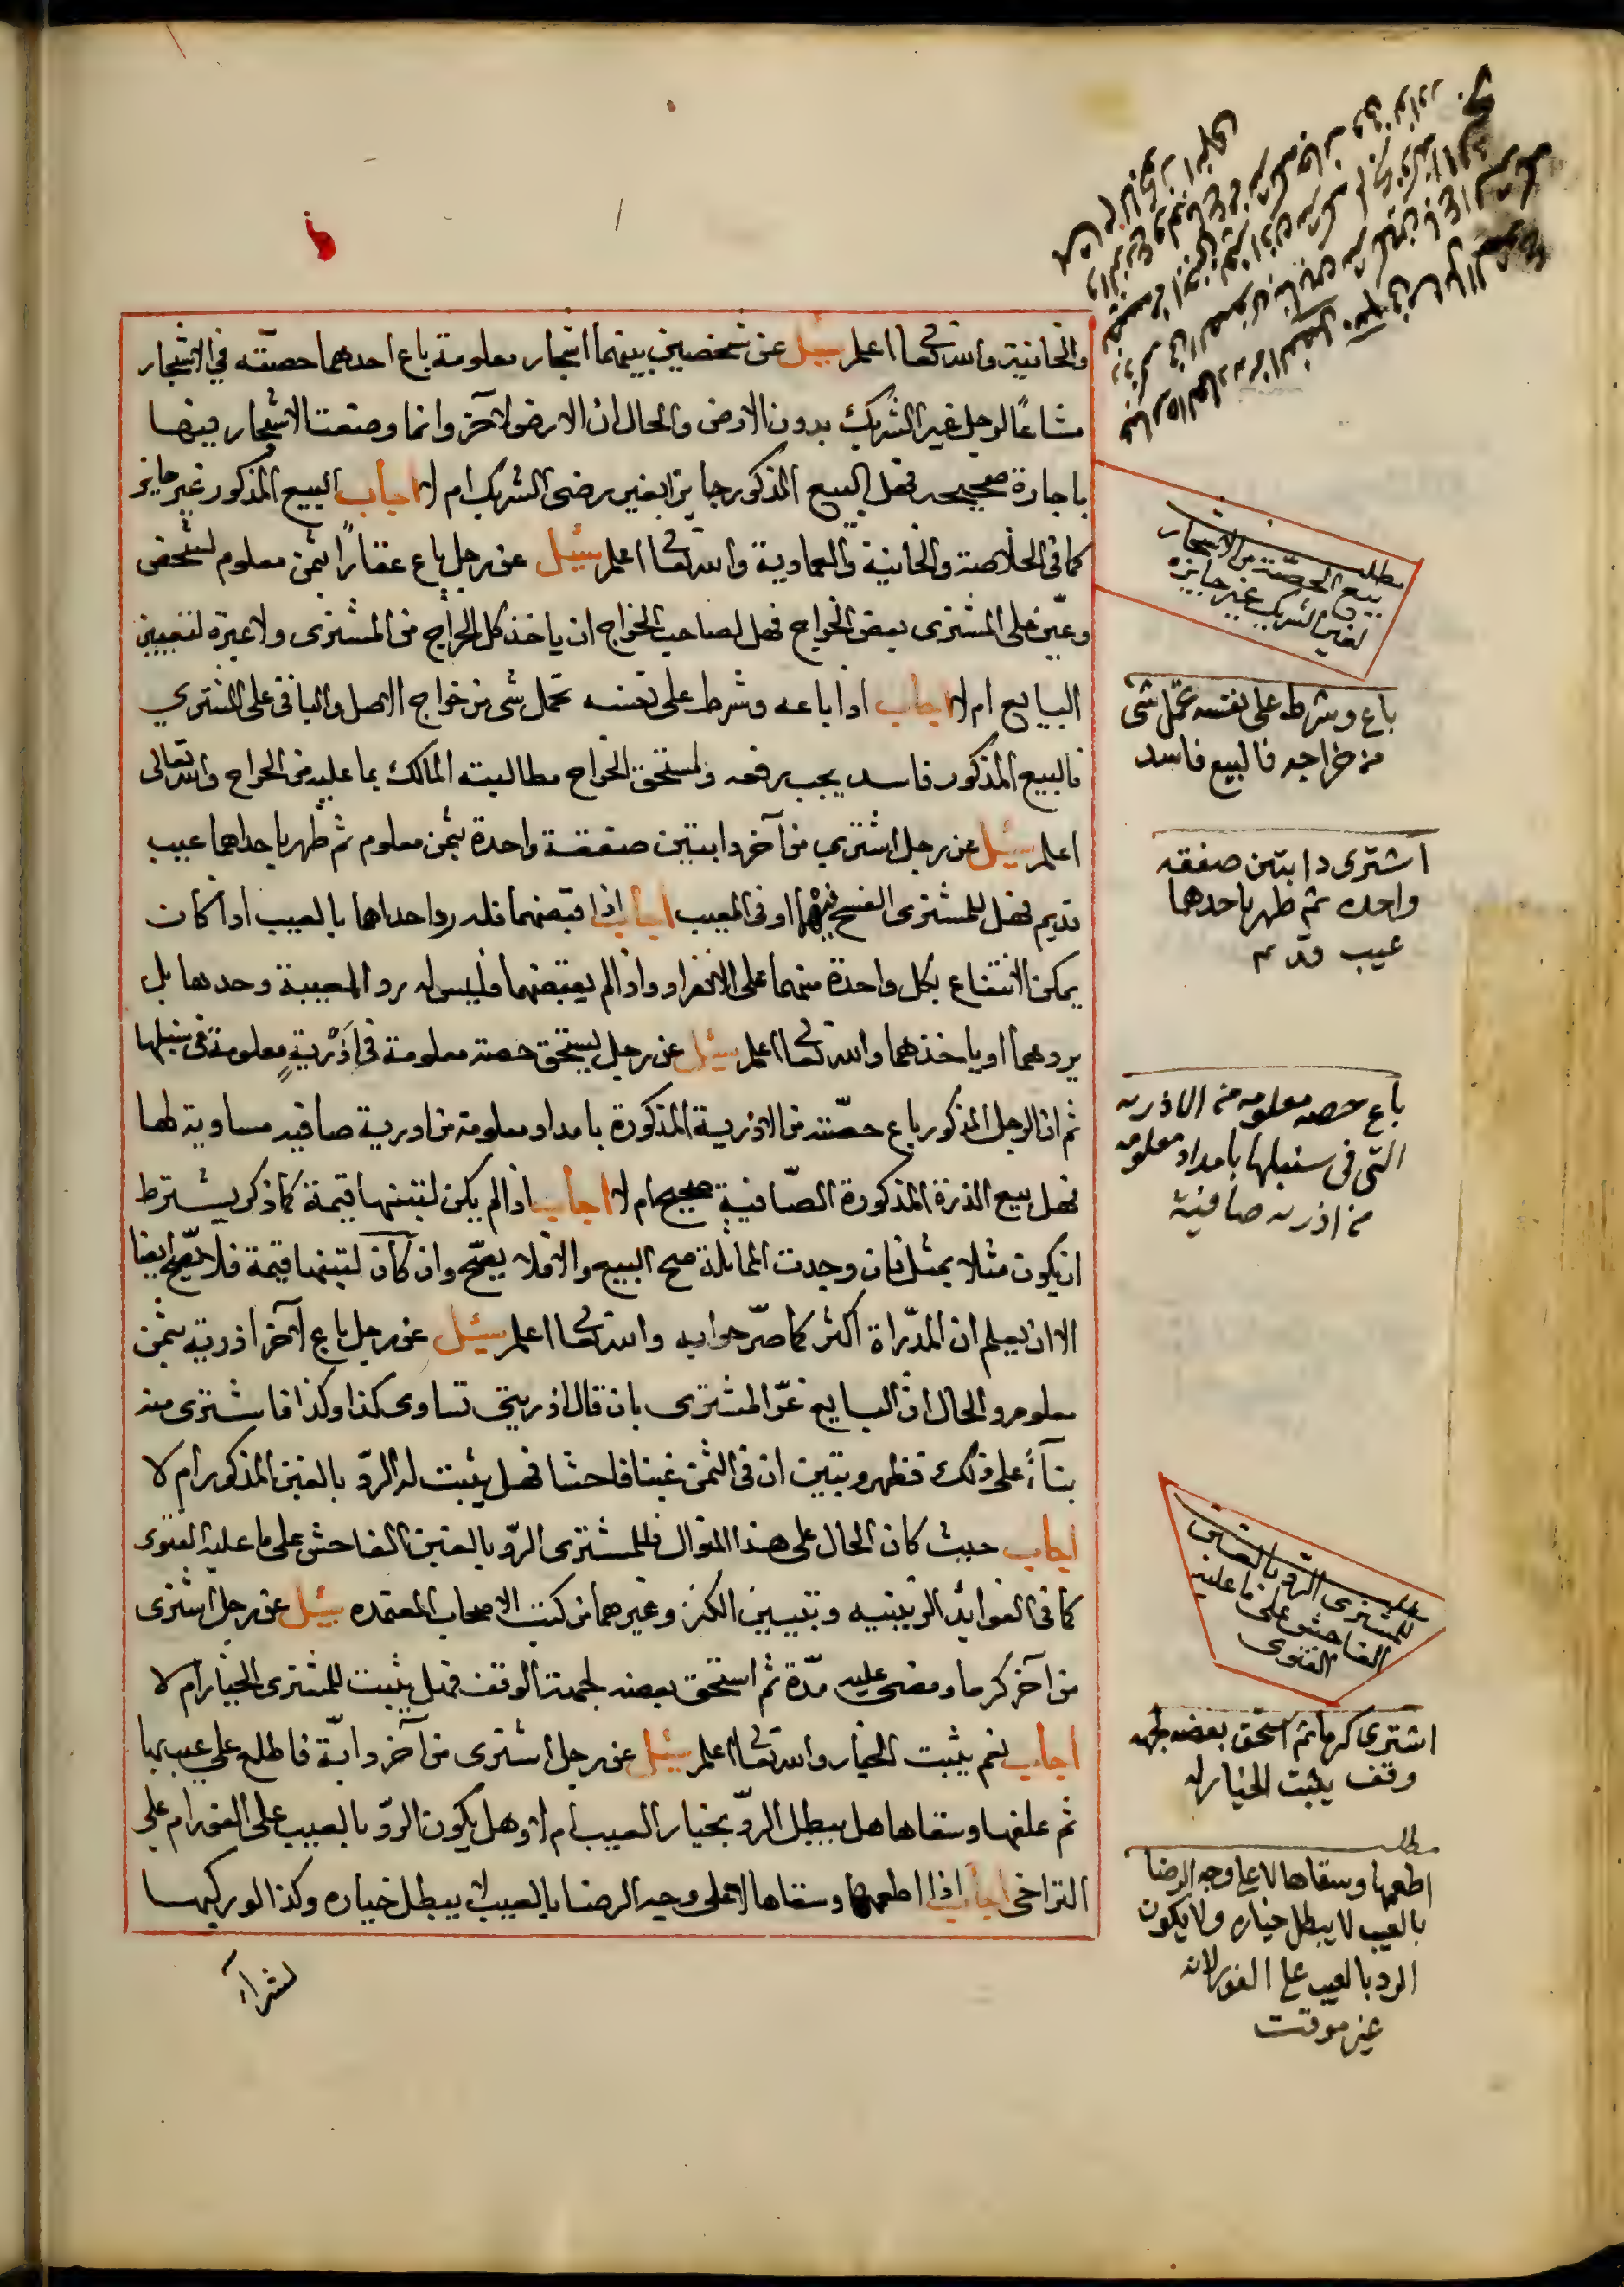 والخانية والله تعا اعلم سئل عن شخصين بينهما اشجار معلومة باع احدهما حصته في الاشجار
مشاعًا لرجل غير الشريك بدون الارض والحال ان الارض لآخر وانما وضعت الاشجار فيها
باجارة صحيحه فهل البيع المذكور جايز بغير رضى الشريك ام لا اجاب البيع المذكور غير جايز
كما في الخلاصة والخانية والعمادية والله تعا اعلم سئل عن رجل باع عقارًا بثمن معلوم لشخص
وعيّن على المشترى بعض الخراج فهل لصاحب الخراج ان ياخذ كل الخراج من المشترى ولا عبرة لتعيين
البايع ام لا اجاب اذا باعه وشرط على نفسه تحمل شى من خراج الاصل والباقى على المشتري
فالبيع المذكور فاسد يجب رفعه ولمستحق الخراج مطالبته المالك بما عليه من الخراج والله تعالى
اعلم سئل عن رجل اشتري من آخر دابتين صفقة واحدة بثمن معلوم ثم ظهر باحداهما عيب
قديم فهل للمشترى الفسخ فيهما او فى المعيب اجاب اذا قبضهما فله رد احداهما بالعيب اذا كان
يمكن الانتفاع بكل واحدة منهما على الانفراد واذا لم يقبضهما فليس له رد المعيبة وحدها بل
يردهما او ياخذهما والله تعا اعلم سئل عن رجل يستحق حصة معلومة فى اَذْريةٍ معلومة فى سنبلها
ثم ان الرجل المذكور باع حصّته من الاذرية المذكورة بامداد معلومة من اذرية صافيه مساوية لها
فهل بيع الذرة المذكورة الصّافية صحيح ام لا اجاب اذا لم يكن لتبنها قيمة كما ذكر يشترط
ان يكون مثلا بمثل فان وجدت المماثلة صح البيع والا فلا يصّح وان كان لتبنها قيمة فلا يصّح ايضا
الا ان يعلم ان المذّراة اكثر كما صرّحوا به والله تعا اعلم سئل عن رجل باع لآخر اذرية بثمن
معلوم والحال ان البايع غرّ المشترى بان قال اذريتى تساوى كذا وكذا فاشترى منه
بنآءً على ذلك فظهر وتبين ان فى الثمن غبنا فاحشا فهل يثبت له الردّ بالغبن المذكور ام لا
اجاب حيث كان الحال على هذا المنوال فللمشترى الردّ بالغبن الفاحش على ما عليه الفتوى
كما فى الفوايد الزينيه وتبيين الكنز وغيرهما من كتب الاصحاب المعتمده سئل عن رجل اشترى
من آخر كرما ومضى عليه مدّة ثم استحق بعضه لجهة الوقف فهل يثبت للمشترى الخيار ام لا
اجاب نعم يثبت الخيار والله تعا اعلم سئل عن رجل اشترى من آخر دابّة فاطلع على عيب بها
ثم علفها وسقاها هل يبطل الردّ بخيار العيب ام لا وهل يكون الردّ بالعيب على الفور ام على
التراخى اجاب اذا اطعمها وسقاها لا على وجه الرضا بالعيب لا يبطل خياره وكذا لو ركبها
لشرآء
مطلب
بيع الحصّة من الاشجار
لغير الشريك غير جايزه
باع وشرط على نفسه تحمّل شى
من خراجه فالبيع فاسد
اشترى دابتين صفقه
واحده ثم ظهر باحدهما
عيب قديم
باع حصه معلومه من الاذريه
التى فى سنبلها بامداد معلومه
من اذريه صافية
مطلب
للمشترى الردّ بالغبن
الفاحش على ما عليه
الفتوى
اشترى كرما ثم استحق بعضه لجهه
وقف يثبت الخيار له
مطلب
اطعمها وسقاها لا على وجه الرضا
بالعيب لا يبطل خياره ولا يكون
الرد بالعيب على الفور لانه
غير موقت